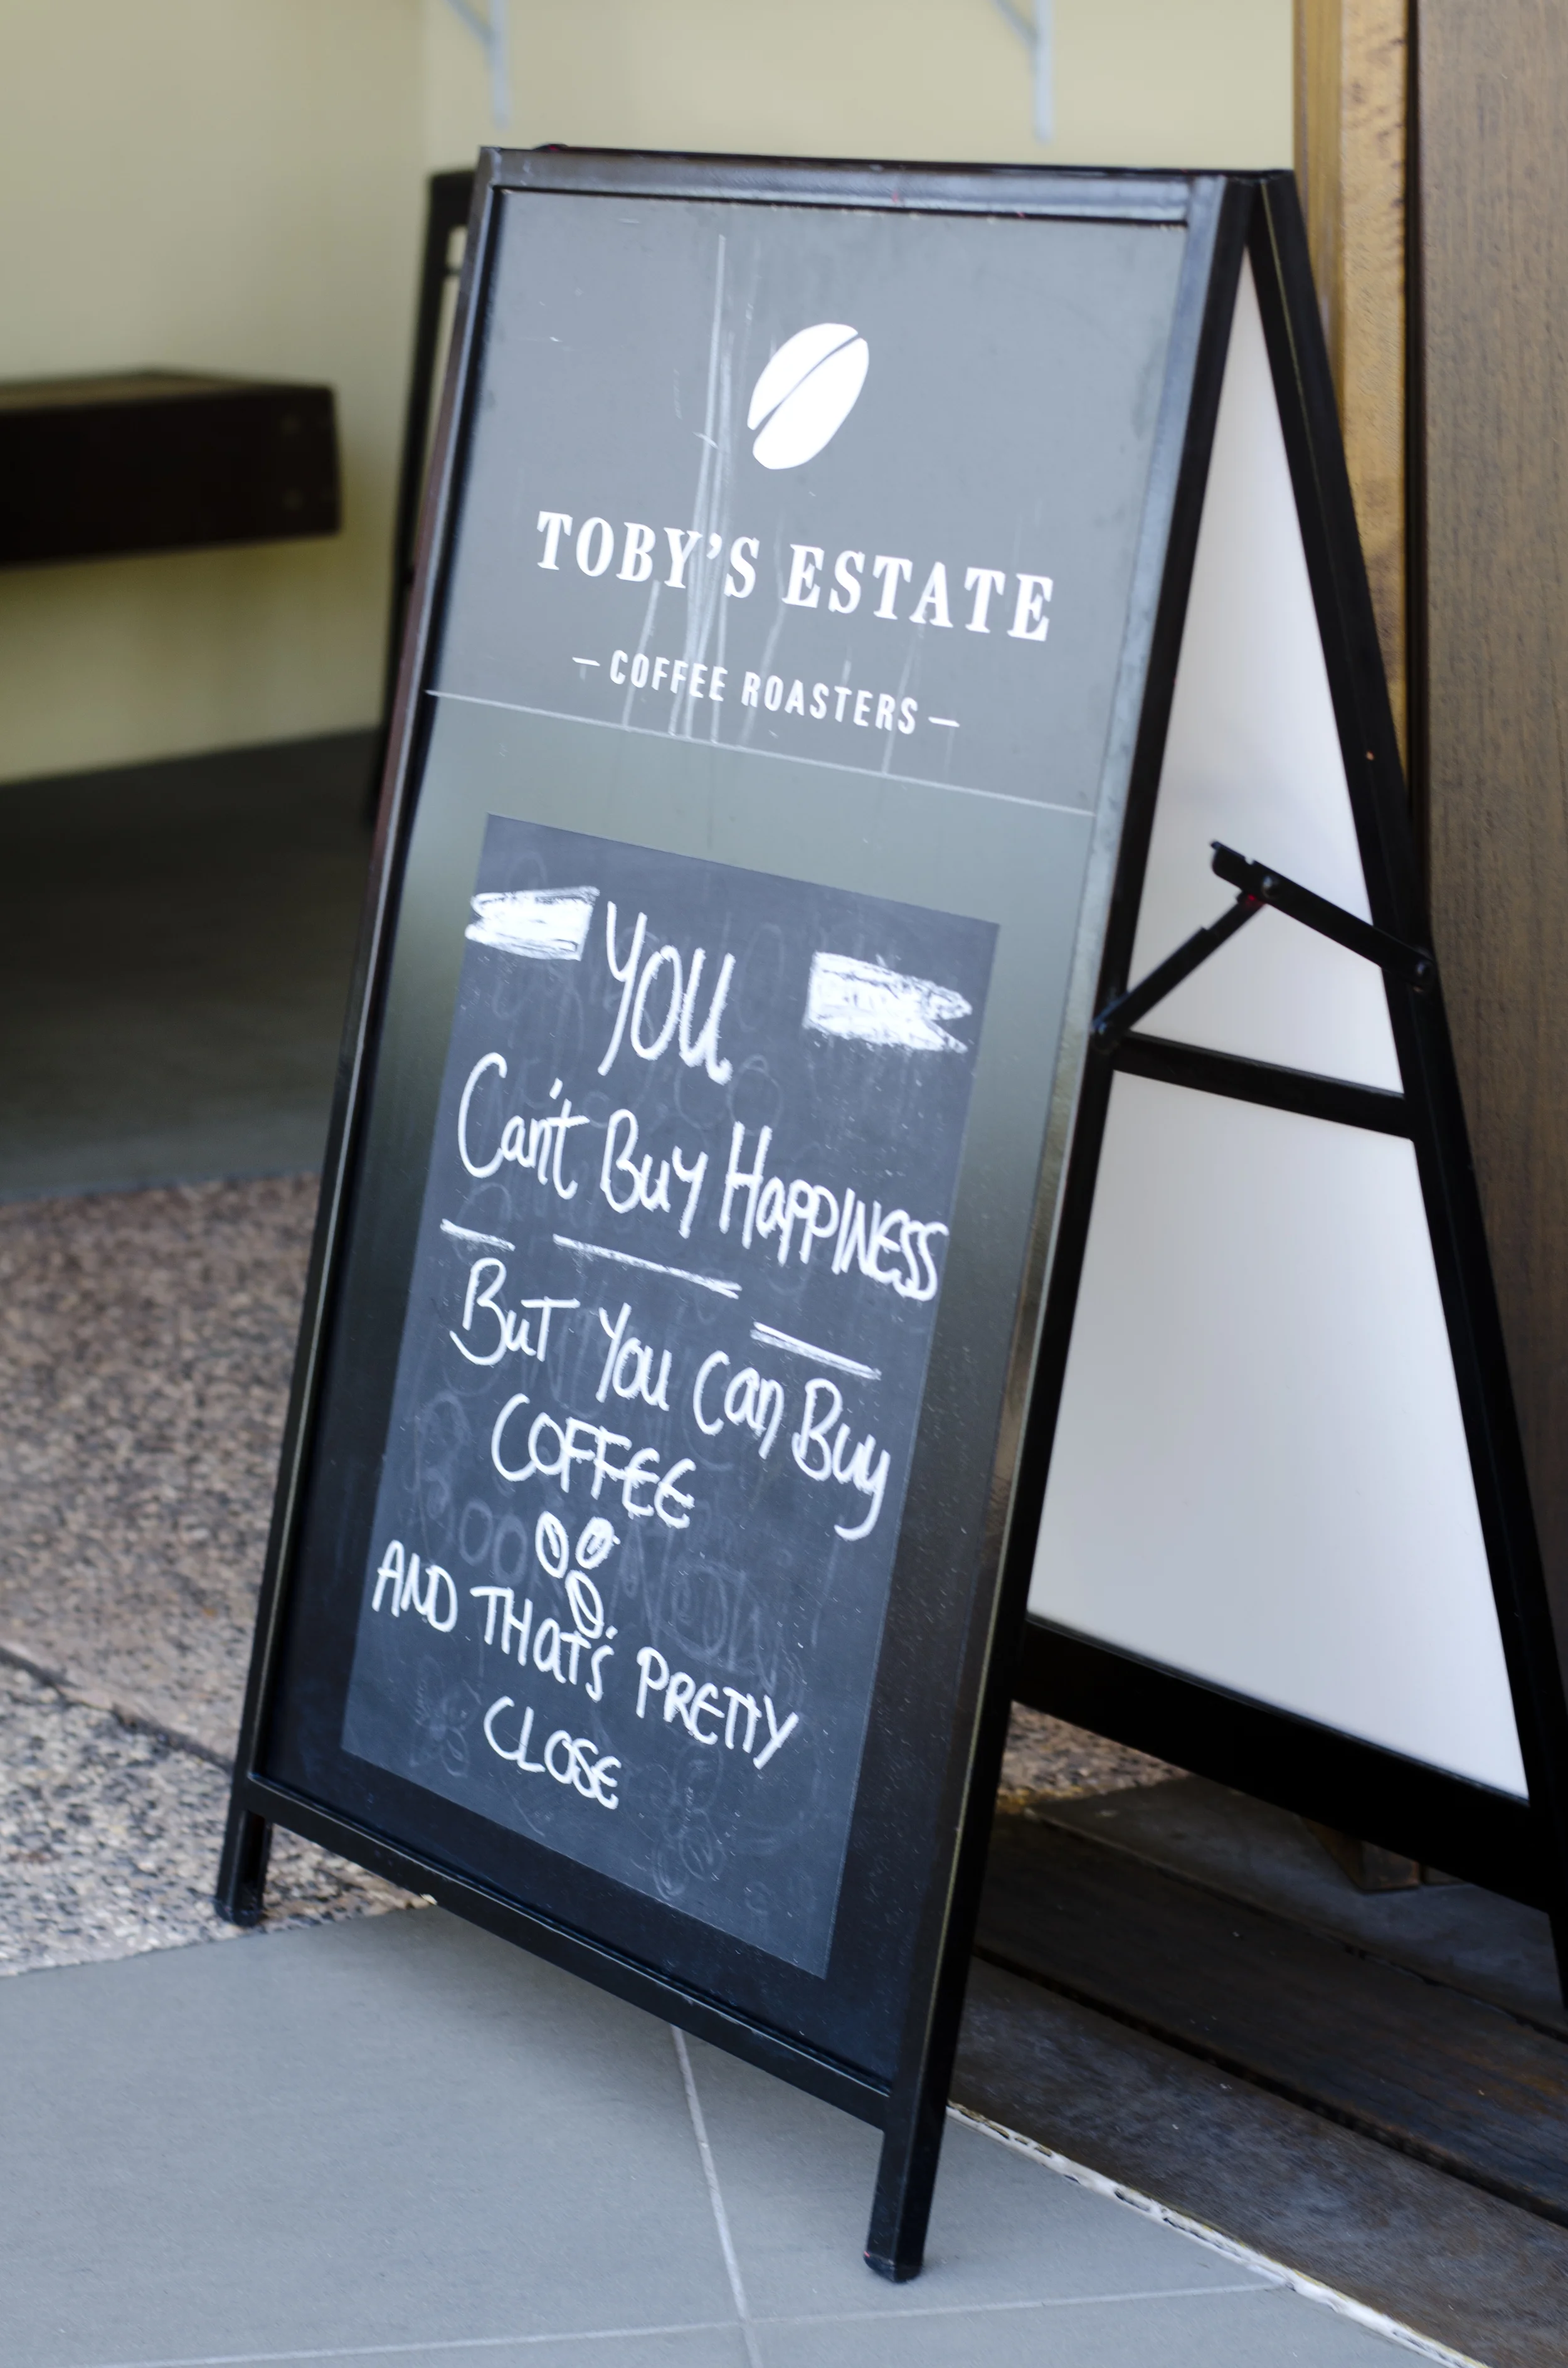 TOBY'S ESTATE
— COFFEE ROASTERS —
YOU
Can't Buy HaPPINESS
BuT You can Buy
COFFEE
AND THaT'S PRETTY
CLOSE